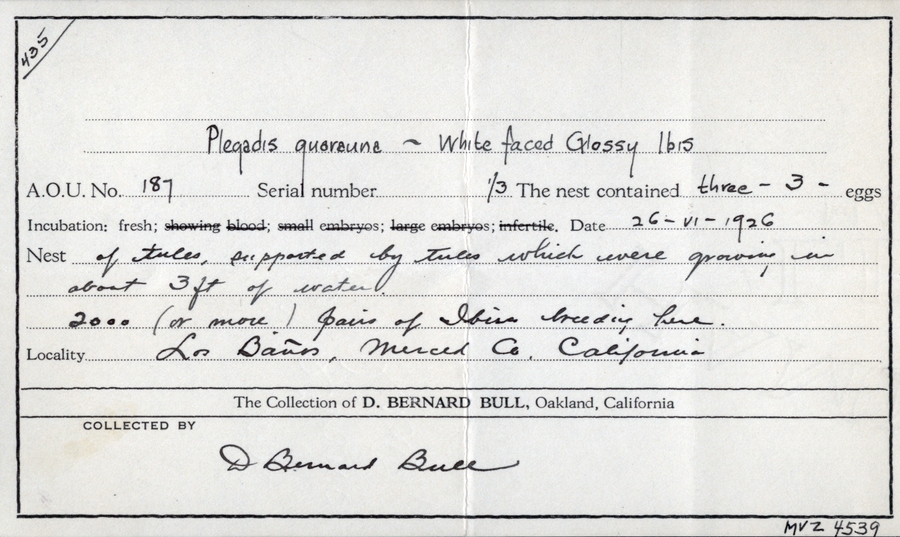 435
Plegadis guarauna ~ White faced Glossy Ibis
A.O.U. No. 187 Serial number 1/3 The nest contained three - 3 - eggs
Incubation: fresh; showing blood; small embryos; large embryos; infertile. Date 26-VI-1926
Nest of tules, supported by tules which were growing in
about 3ft of water.
2000 (or more!) pairs of Ibis breeding here.
Locality Los Baños, Merced Co. California
The Collection of D. BERNARD BULL, Oakland, California
COLLECTED BY
D Bernard Bull
MVZ 4539